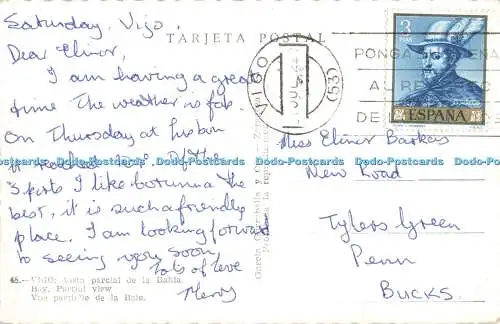 Saturday, Vigo.
TARJETA POSTAL
Dear Elinor,
I am having a great
time The weather is fab.
On Thursday at Lisbon
it reached 120°. Of the
3 ports I like Corunna the
best, it is such a friendly
place. I am looking forward
to seeing very soon
lots of love
Merry
48. - VIGO: Vista parcial de la Bahía
Bay, Partial view
Vue partielle de la Baie.
García Garrabella y
VIGO
(53)
PONGA
AU
DE
3
PTAS
ESPAÑA
Miss Elinor Barkes
New Road
Tylers Green
Penn
BUCKS.
Dodo-Postcards Dodo-Postcards Dodo-Postcards Dodo-Postcards Dodo-Postcards Dodo-Postcards